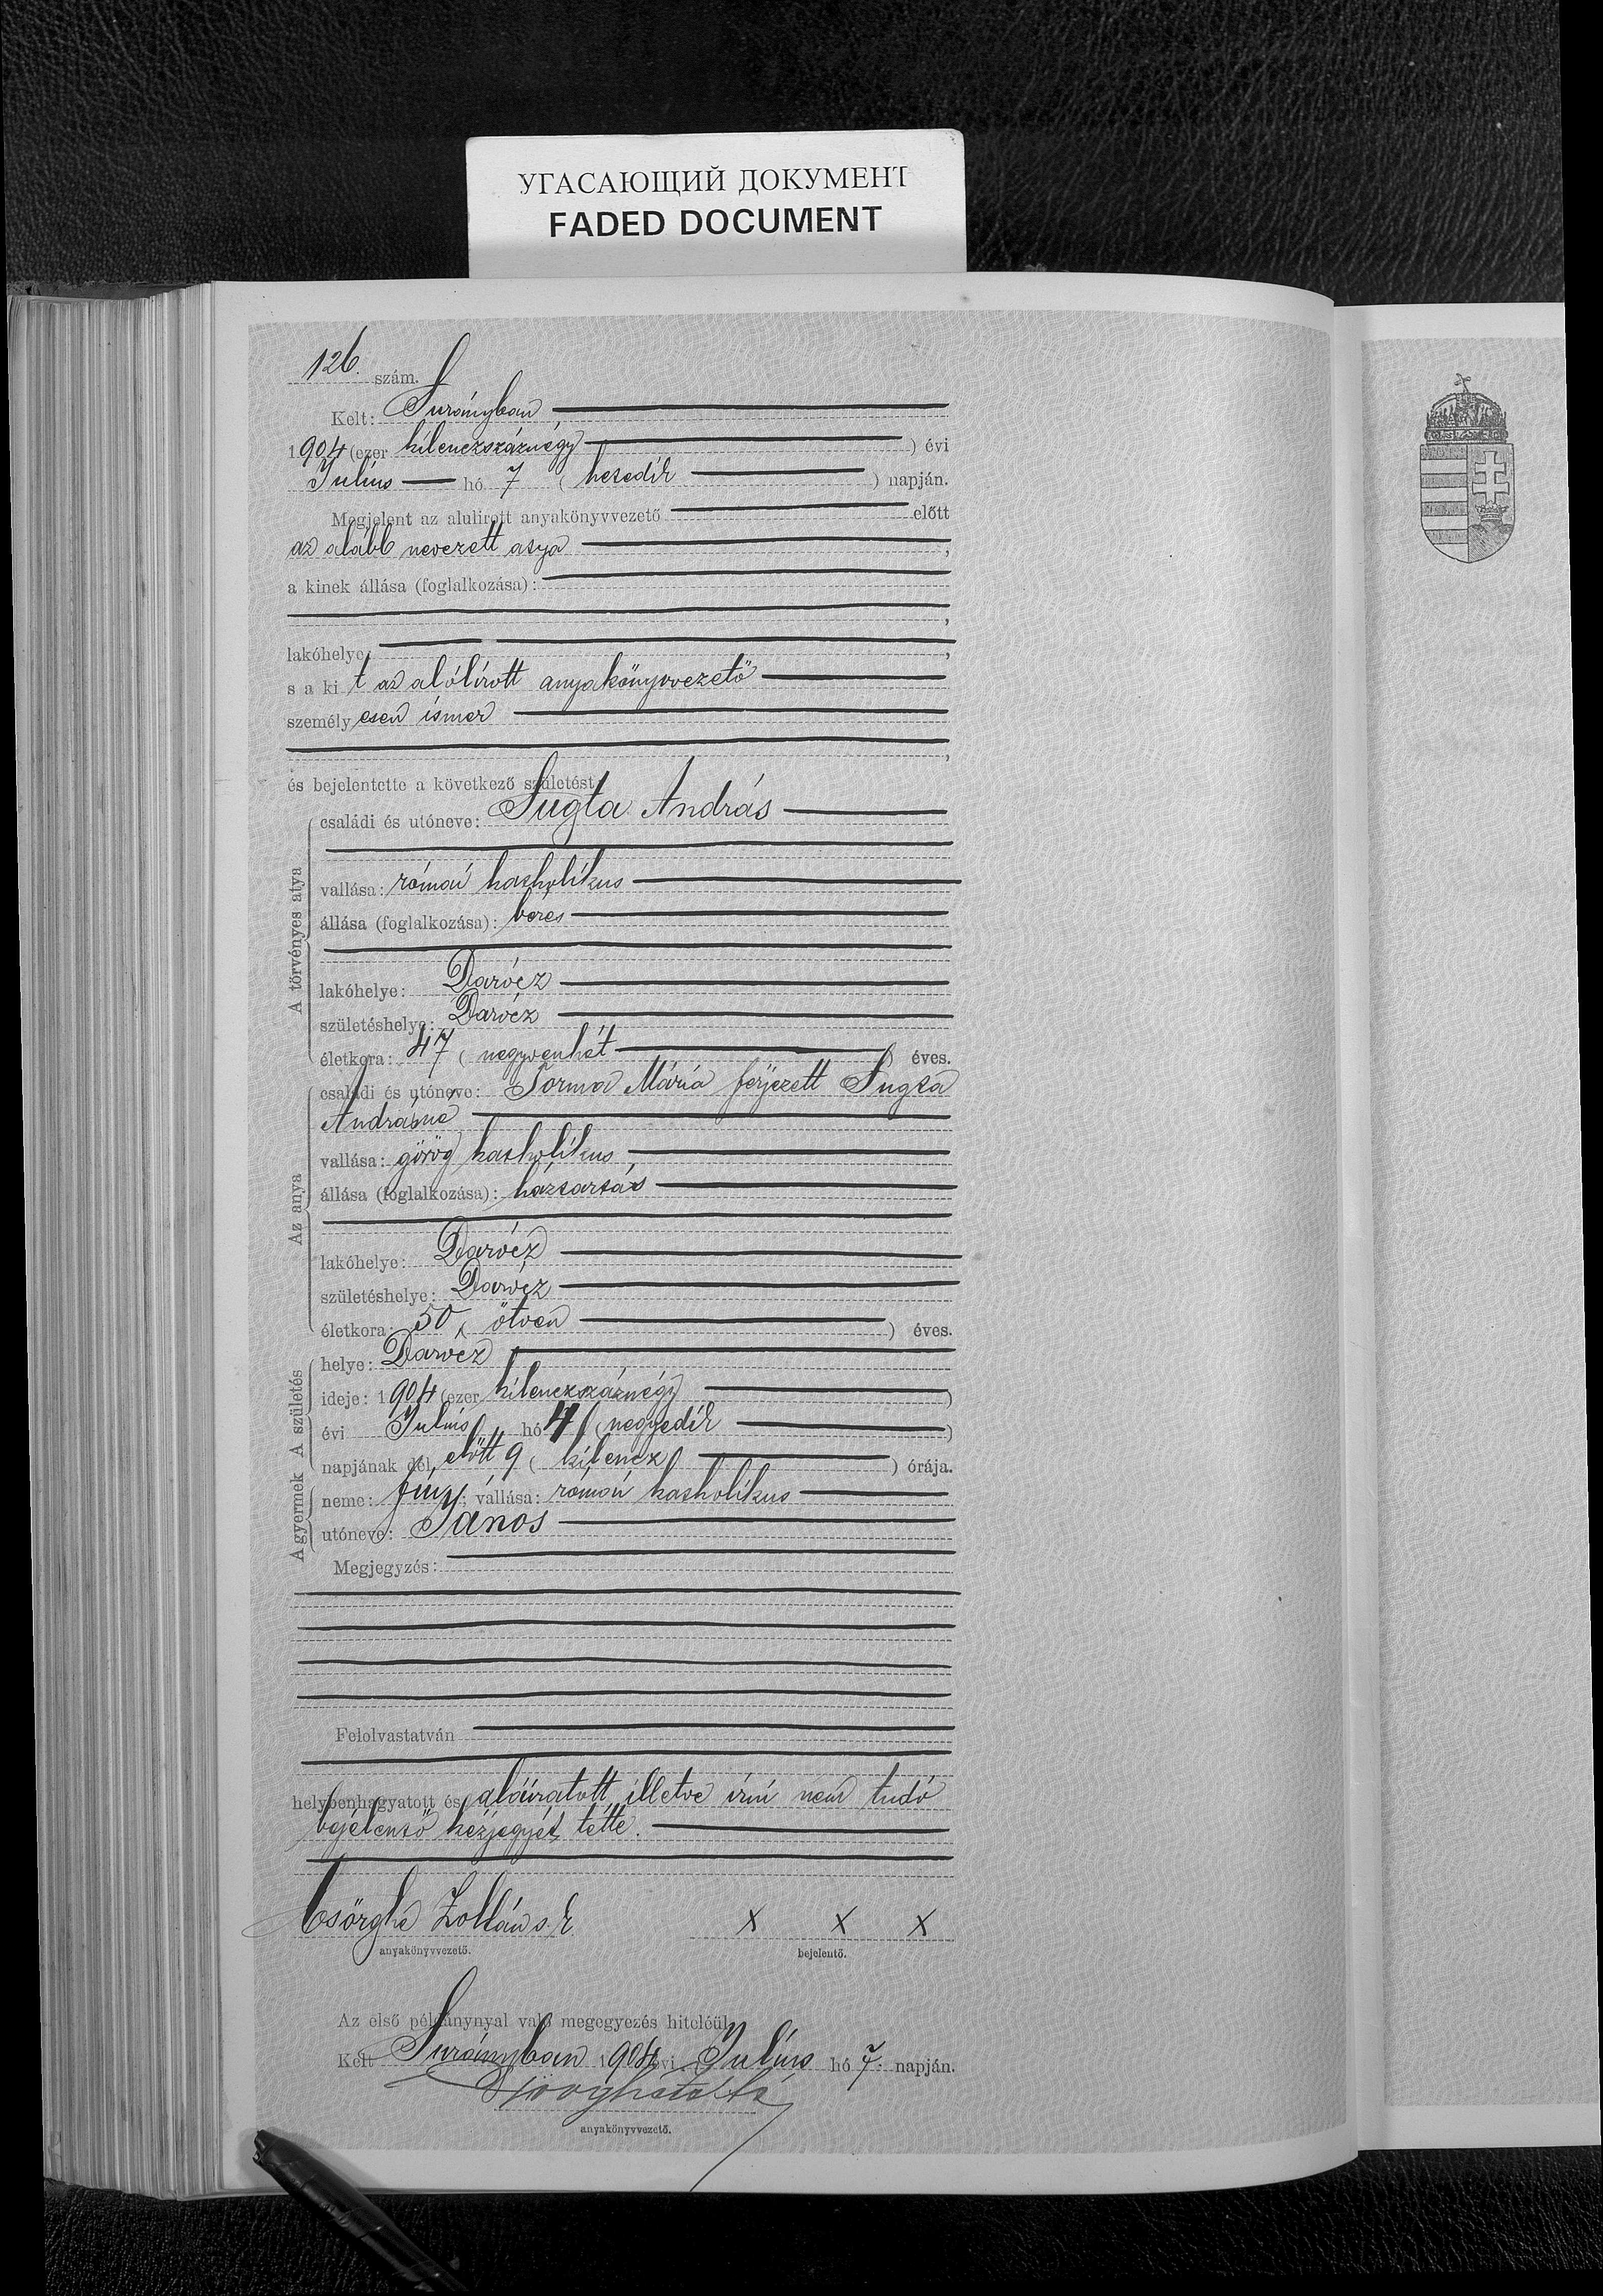 УГАСАЮЩИЙ ДОКУМЕНТ
FADED DOCUMENT
126. szám.
Kelt: Surányban
1904 (ezer kilenczszáznégy) évi
Julius hó 7 (hetedik) napján.
Megjelent az alulirott anyakönyvvezető előtt
az alább nevezett atya,
a kinek állása (foglalkozása):
,
lakóhelye: ,
s a kit az alólírott anyakönyvvezető
személyesen ismer
,
és bejelentette a következő születést:
A törvényes atya
családi és utóneve: Sugta András
vallása: római katholikus
állása (foglalkozása): béres
lakóhelye: Darócz
születéshelye: Darócz
életkora: 47 (negyvenhét) éves.
Az anya
családi és utóneve: Torma Mária férjezett Sugta
Andrásné
vallása: görög katholikus
állása (foglalkozása): háztartás
lakóhelye: Darócz
születéshelye: Darócz
életkora: 50 (ötven) éves.
A születés
helye: Darócz
ideje: 1904 (ezer kilenczszáznégy)
évi Julius hó 4 (negyedik)
napjának dél, előtt 9 (kilencz) órája.
A gyermek
neme: fiu; vallása: római katholikus
utóneve: János
Megjegyzés:
Felolvastatván
helybenhagyatott és aláiratott illetve irni nem tudó
bejelentő kézjegyét tette.
Csörghe Zoltán s. k. x x x
anyakönyvvezető. bejelentő.
Az első példánynyal való megegyezés hiteléül
Kelt Surányban 1904 évi Julius hó 7. napján.
anyakönyvvezető.